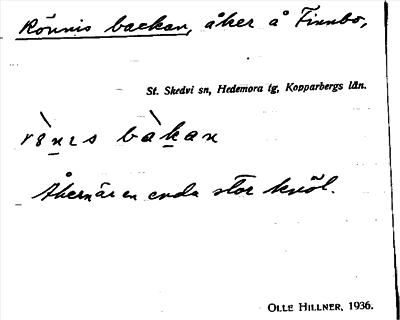 Rönnis backan, åker å Finnbo,
St. Skedvi sn, Hedemora tg, Kopparbergs län.
bàkan
Åkern är en enda stor knöl.
OLLE HILLNER, 1936.